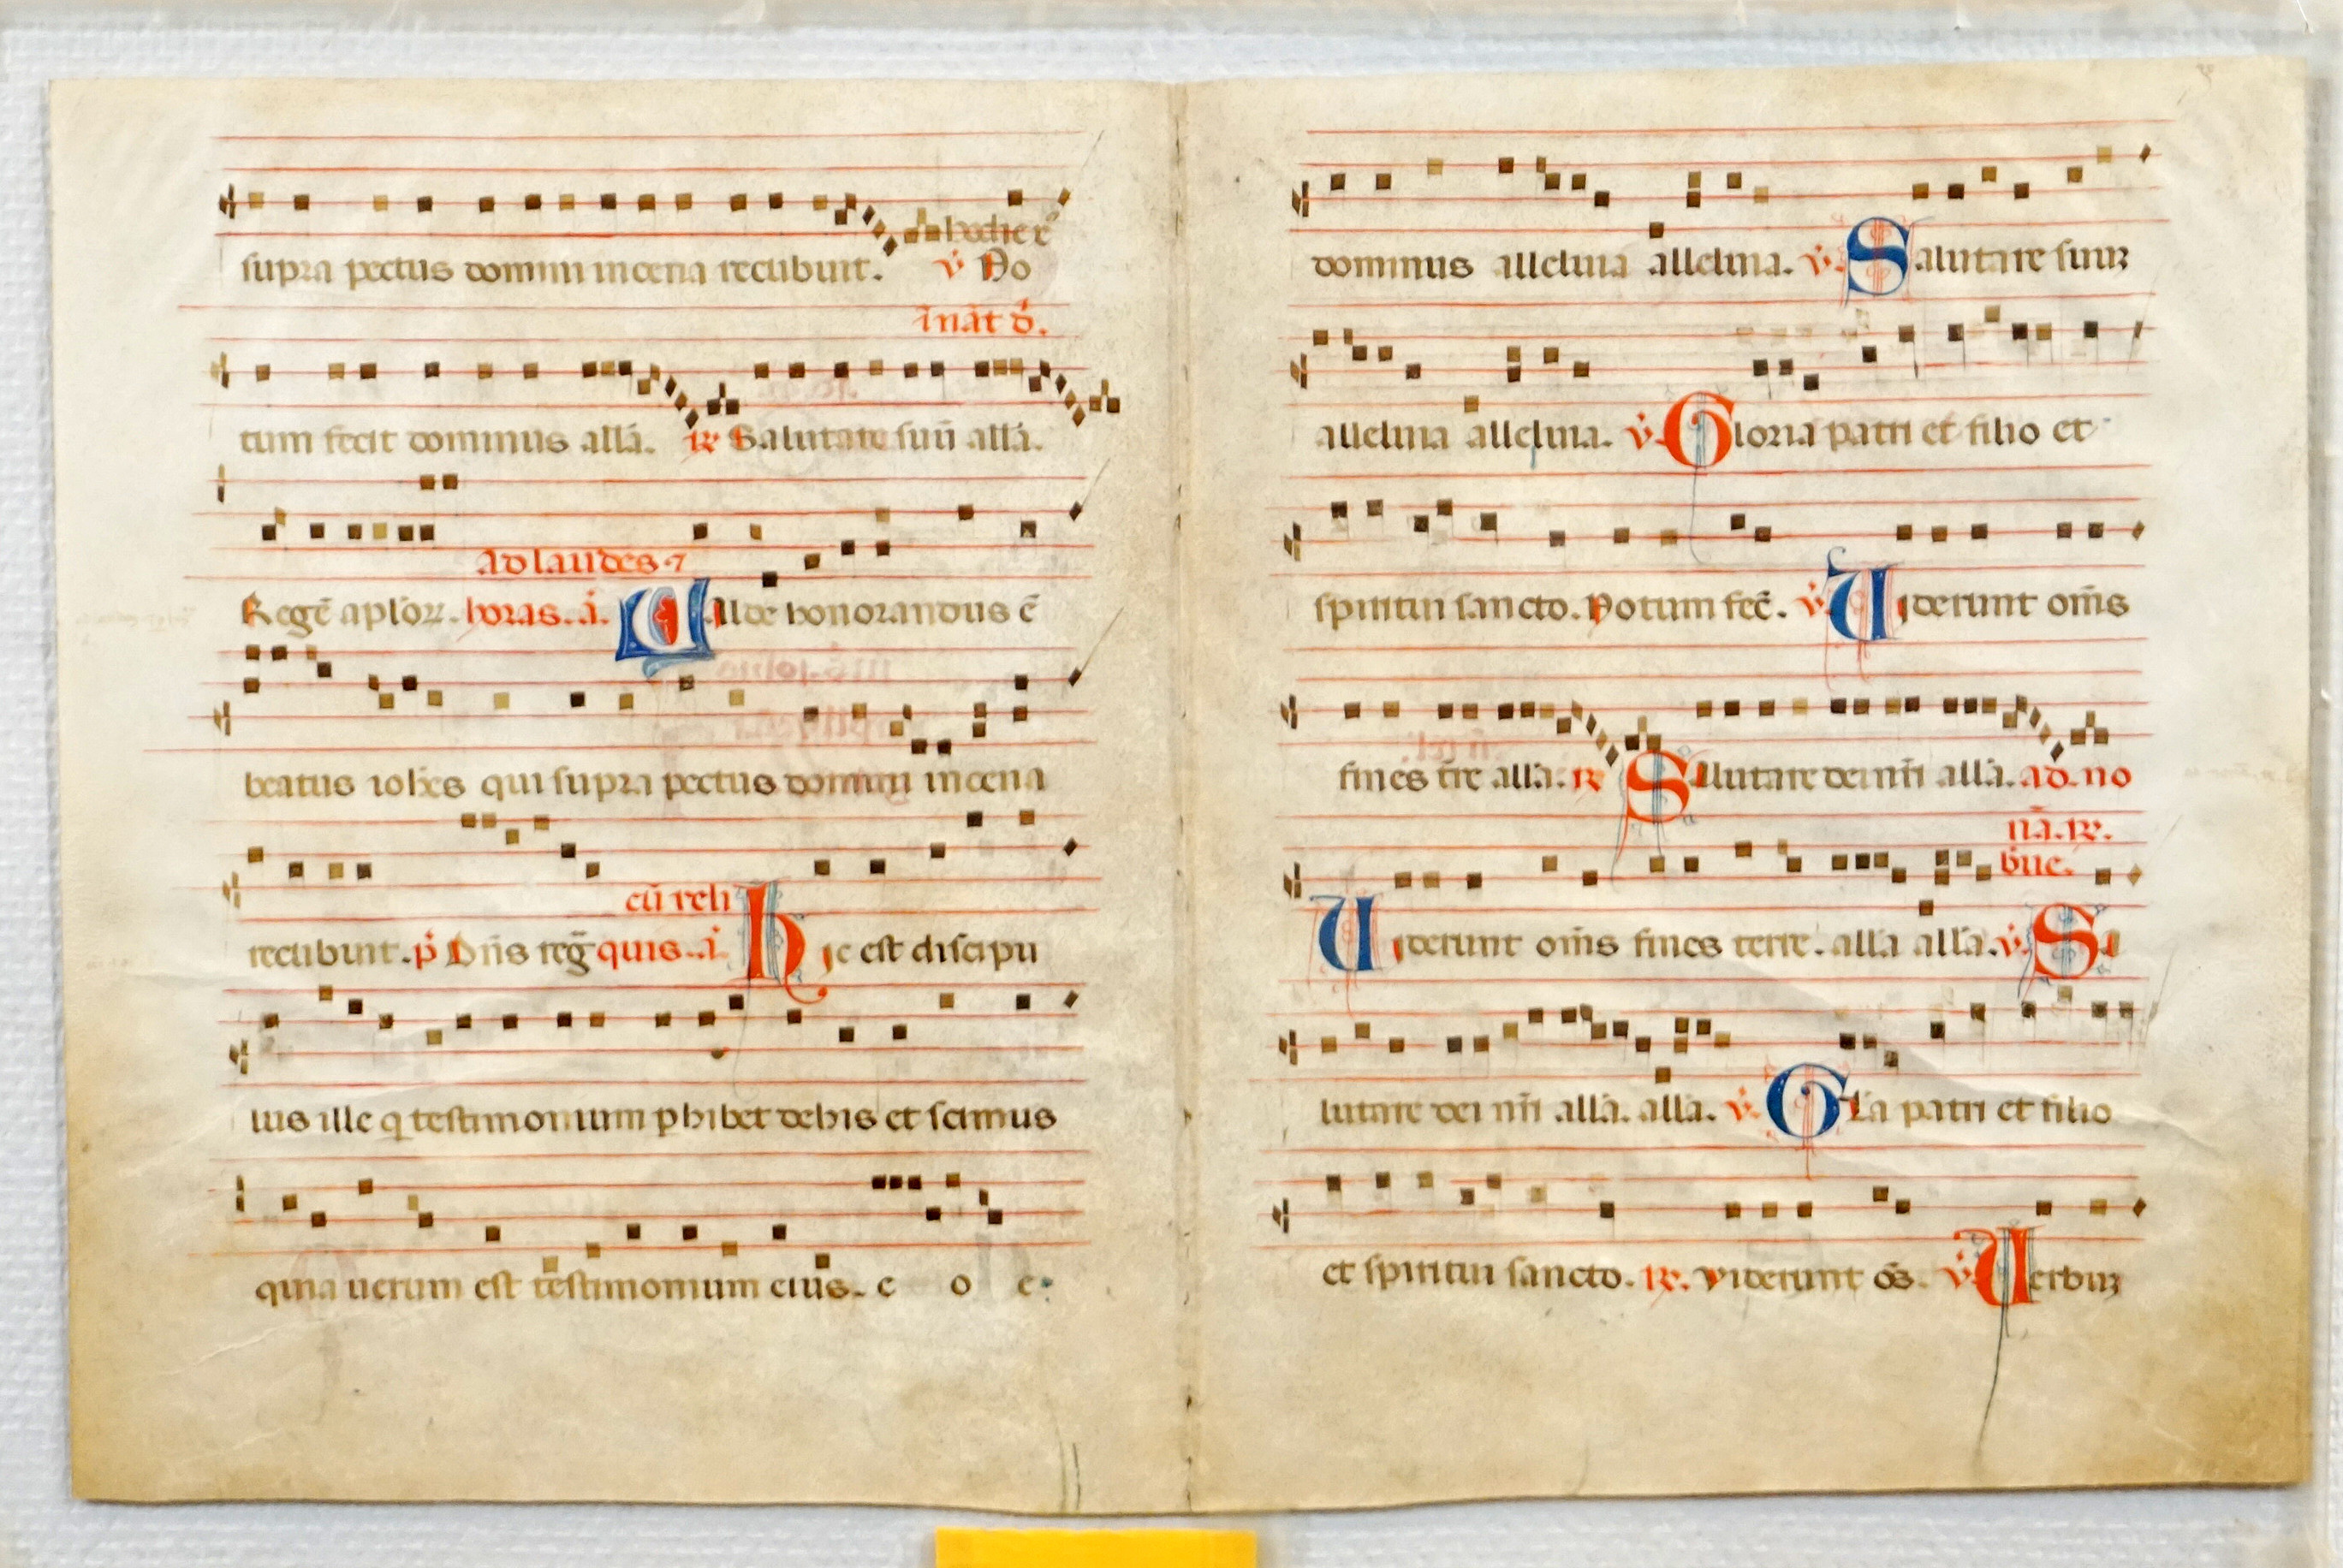 supra pectus domini in cena recubuit. v̇ No
in nat̄ d̄.
tum fecit dominus all̄a. ꝶ Salutare suū all̄a.
ad laudes ⁊
Regē ap̄loꝝ. horas. a͞. Ualde honorandus ē
beatus ioh̄es qui supra pectus domini in cena
cū reli
recubuit. p̄ Dn̄s reḡ quis. a͞. Hic est discipu
lus ille q̇ testimonium phibet de his et scimus
quia uerum est testimonium eius. e o e.
dominus alleluia alleluia. v̇. Salutare suuꝫ
alleluia alleluia. v̇. Gloria patri et filio et
spiritui sancto. Notum fec̄. v̇. Uiderunt om̄s
fines tr̄e all̄a. ꝶ Salutare dei nr̄i all̄a. ad. no
nā. ꝶ.
bue.
Uiderunt om̄s fines terre. all̄a all̄a. v̇. Sa
lutare dei nr̄i all̄a. all̄a. v̇. Gl̄a patri et filio
et spiritui sancto. ꝶ. viderunt ōs. v̇. Uerbuꝫ